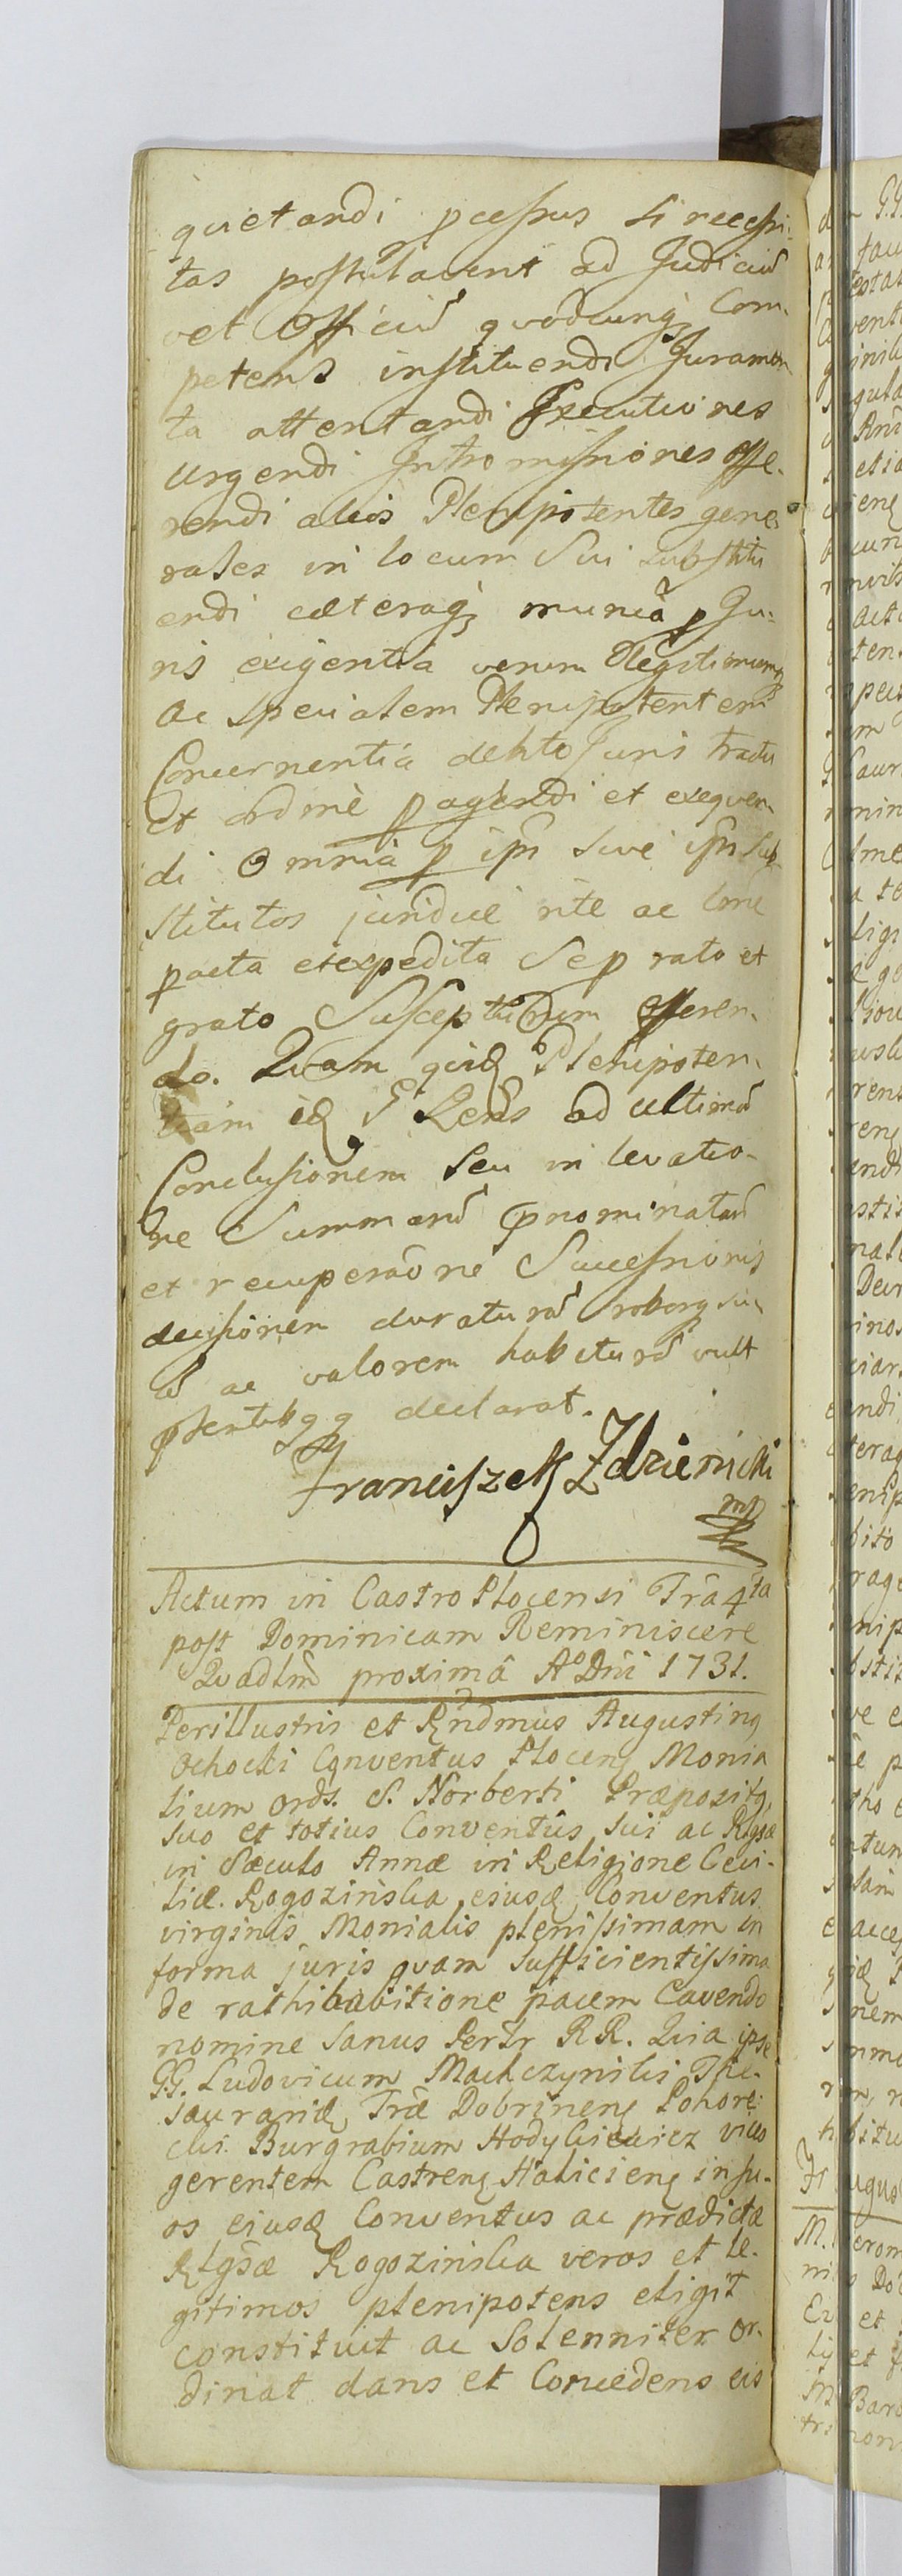 quietandi pcessus si necessi-
tas postulaverit ad Judiciũ
vel Officiũ quodcunq; Com-
petens instituendi Juramen-
ta attentandi Executiones
urgendi Intromissiones offe-
rendi alios Plenipotentes gene-
rales in locum sui substitu
endi cæteraq; munia p Ju-
ris exigentia verum legitimumq;
ac specialem Plenipotentem
Concernentia debito Juris tractu
et ordinè pagendi et exequen-
di Omnia p ipm sive ipm sub-
stitutos juridicè rite ac bone
pacta et expedita Se p rato et
grato Suscepturum offeren-
do. Quam quidem Plenipoten-
tiam id G Rens ad ultimã
Conclusionem seu in levatio-
ne Summarũ pnominatarũ
et recuperaõne Successionis
decisionem duraturã roborq; su-
ũ ac valorem habiturã vult
psentibq; declarat.
Franciszek Zdzienicki
mp
Actum in Castro Plocensi Frã 4ta
post Dominicam Reminiscere
Quadlm̃ proximâ Aº Dñi 1731.
Perillustris et Rñdmus Augustinq
Ochocki Conventus Plocenq Monia
lium ords. S. Norberti Præpositq,
suo et totius Conventûs sui ac Rlgsæ
in Sæculo Annæ in Religione Ceci-
liæ. Rogozińska, ejusq Conventus
virginis Monialis plenissimam in
forma juris quam sufficientissima
de rathihabitione pacem Cavendo
nomine sanus Pertr RR. Quia ipse
G.G. Ludovicum Machczyński The-
saurariq Træ Dobrineng Pohore-
cki Burgrabium Hodykiewicz vices
gerentem Castreng Halicieng in su-
os ejusq Conventus ac prædictæ
Rlgsæ Rogozińska veros et le-
gitimos plenipotens eligit
constituit ac Solenniter or-
dinat dans et Concedens eis